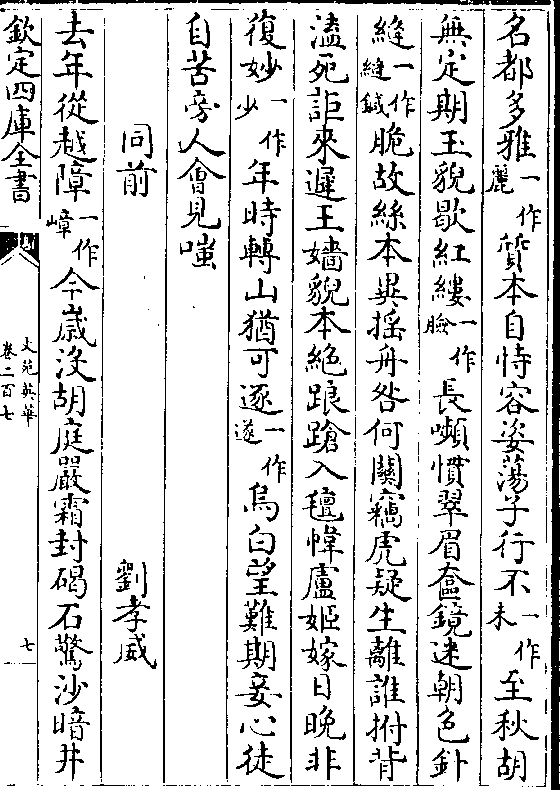 名都多雅一作麗質本自恃容姿蕩子行不一作未至秋胡
無定期玉貌歇紅縷一作臉長嚬慣翠眉奩鏡迷朝色針
縫一作縫鍼脆故絲本異揺舟咎何關竊虎疑生離誰拊背
溘死詎來遲王嬙貌本絶踉蹌入氊幃盧姬嫁日晚非
復妙一作少年時轉山猶可逐一作遂烏白望難期妾心徒
自苦旁人會見嗤
同前　劉孝威
去年從越障一作嶂今歳沒胡庭嚴霜封碣石驚沙暗井
欽定四庫全書
文苑英華
卷二百七
七